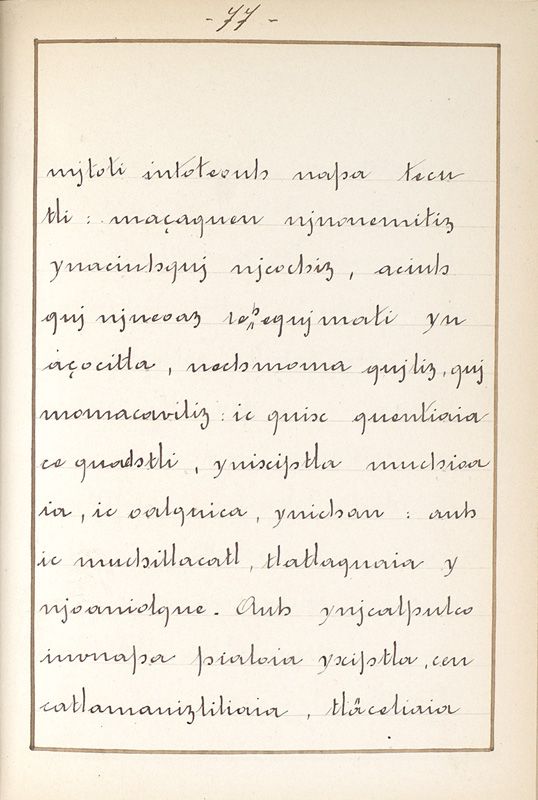 - 77 -
mjtoti intoteouh napa tecu
tli : maçaquen njnonemitiz
ynaciuhquj njcochiz, aciuh
quj njneoaz ie^h equjmati yn
açocitla, nechmoma qujliz, quj
momacaviliz : ic quix quentiaia
ce quadhtli, ynixiptla muchioa
ia, ic oalquica, ynichan : auh
ic muchitlacatl, tlatlaquaia y
njoaniolque. Auh ynjcalpulco
invnapa pialoia yxiptla, cen
catlamaniztiliaia, tlâceliaia